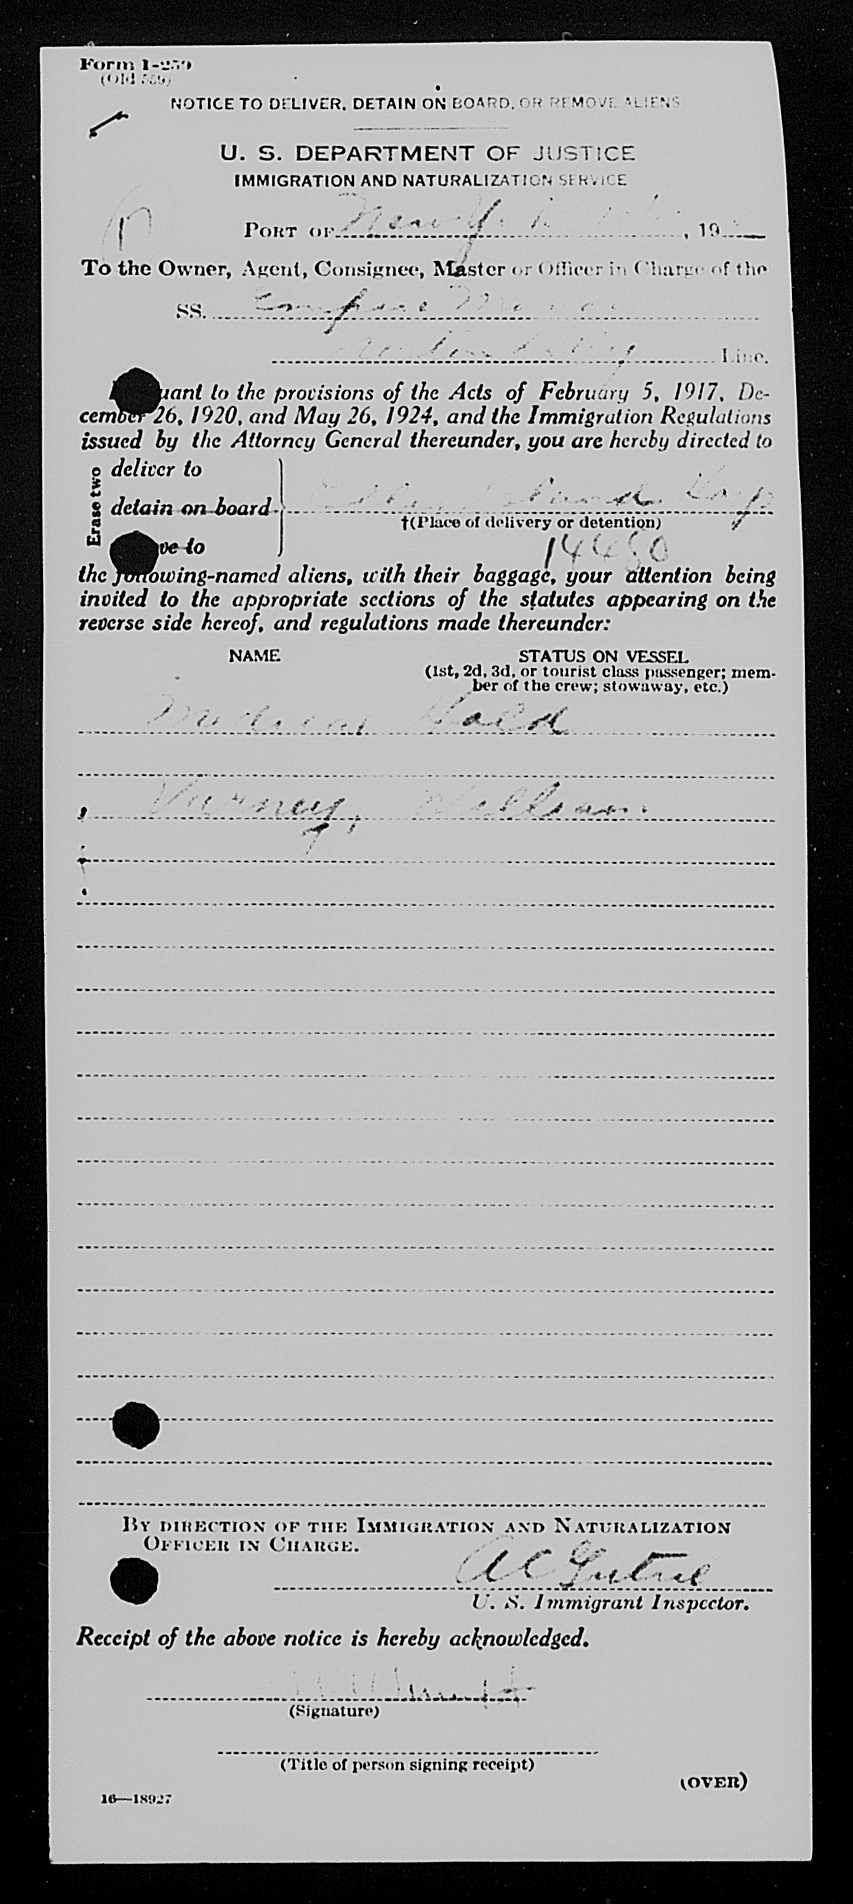 Form I-259
(Old 559)
NOTICE TO DELIVER, DETAIN ON BOARD, OR REMOVE ALIENS
U. S. DEPARTMENT OF JUSTICE
IMMIGRATION AND NATURALIZATION SERVICE
PORT OF New York , 19
To the Owner, Agent, Consignee, Master or Officer in Charge of the
SS. Empire
Line.
Pursuant to the provisions of the Acts of February 5, 1917, De-
cember 26, 1920, and May 26, 1924, and the Immigration Regulations
issued by the Attorney General thereunder, you are hereby directed to
Erase two
deliver to
detain on board
Ellis Island Hosp
†(Place of delivery or detention)
ve to
14480
the following-named aliens, with their baggage, your attention being
invited to the appropriate sections of the statutes appearing on the
reverse side hereof, and regulations made thereunder:
NAME STATUS ON VESSEL
(1st, 2d, 3d, or tourist class passenger; mem-
ber of the crew; stowaway, etc.)
Medical Hold
Varney, William
BY DIRECTION OF THE IMMIGRATION AND NATURALIZATION
OFFICER IN CHARGE.
U. S. Immigrant Inspector.
Receipt of the above notice is hereby acknowledged.
(Signature)
(Title of person signing receipt)
(OVER)
16—18927